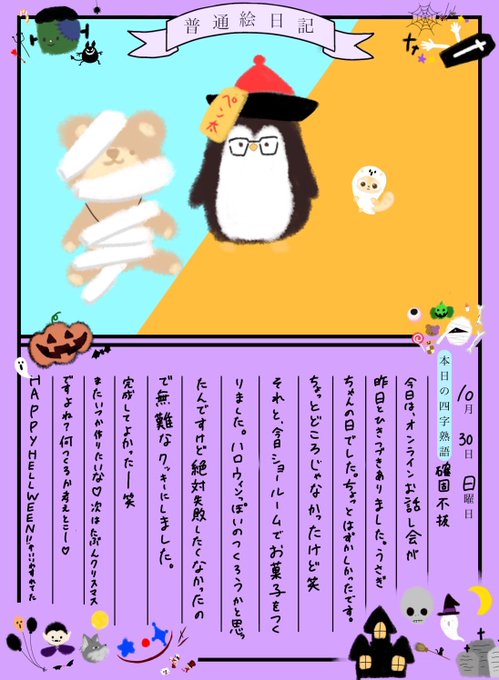 普通絵日記
ペン太
10月30日日曜日
本日の四字熟語 確固不抜
今日は、オンラインお話し会が
昨日とひきつづきありました。うさぎ
ちゃんの日でした。ちょっとはずかしかったです。
ちょっとどころじゃなかったけど笑
それと、今日ショールームでお菓子をつく
りました。ハロウィンっぽいのつくろうかと思っ
たんですけど絶対失敗したくなかったの
で無難なクッキーにしました。
完成してよかったー笑
またいつか作りたいな♡次はたぶんクリスマス
ですよね?何つくるか考えとこー♡
HAPPY HELLWEEN!!